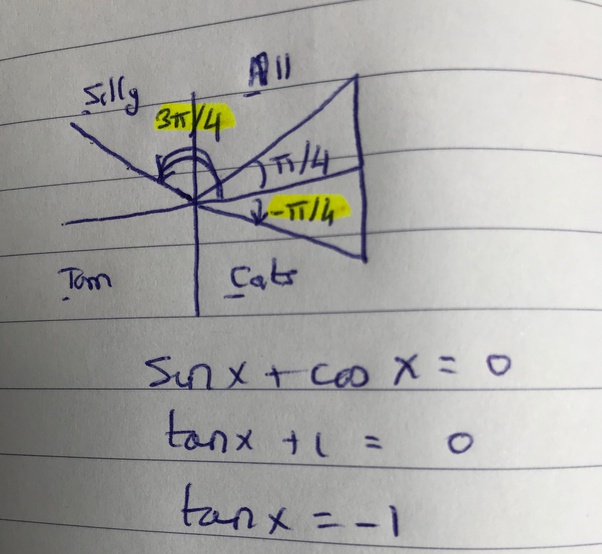 All
Silly
3π/4
π/4
-π/4
Tom
Cats
sin x + cos x = 0
tan x + 1 = 0
tan x = -1